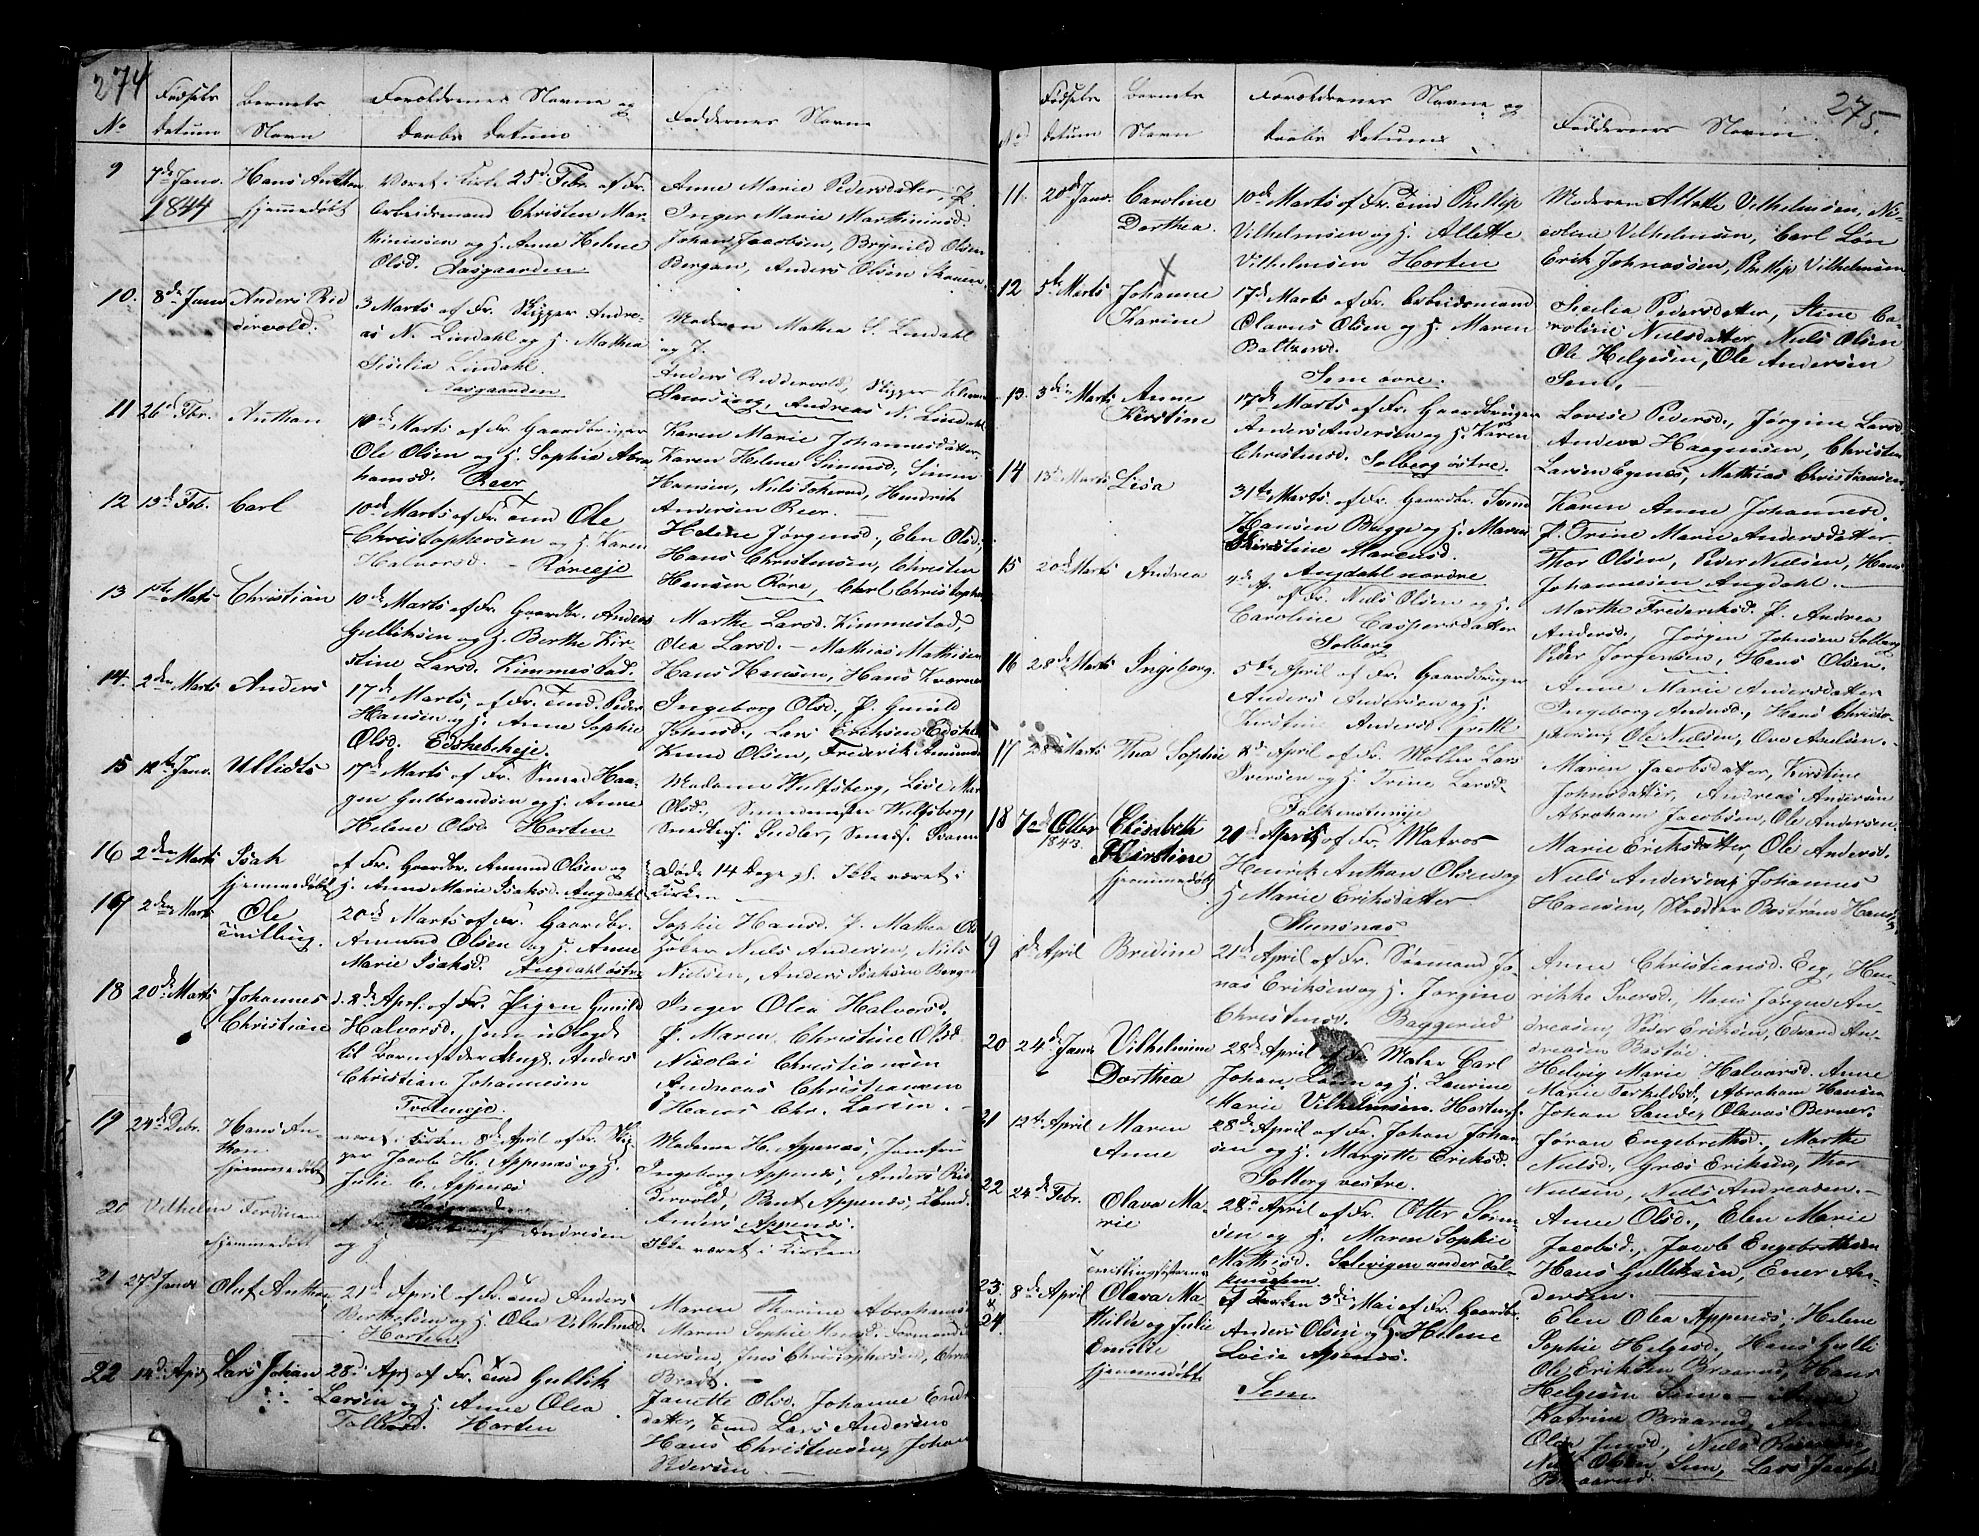 274
No
Fødsels
Datum
Barnets
Navn
Forældrenes Navne og
Daabs Datum
Faddernes Navne
9
7de Janv.
1844
Hans Anthon
hjemmedøbt
Været i Kirke 25d Febr. af Fr.
Arbeidsmand Christen Mar-
thiniusen og H. Anne Helene
Olsd. Aasgaarden
Anne Marie Pedersdatter, P.
Inger Marie Marthiniusd.
Johan Jacobsen, Brynild Olsen
Bergan, Anders Olsen
10.
8de Janv
Anders Rid
dervold.
3 Marts af Fr. Skipper Andre-
as N. Lindahl og H. Mathea
Sicelia Lindahl.
Aasgaarden
Moderen Mathea S. Lindahl
og J.
Anders Riddervold, Skipper
Andreas N. Lindahl
11
26d Fbr.
Anthon
10de Marts af Fr. Gaardbruger
Ole Olsen og H. Sophie Abra
hamsd. Reer
Karen Marie Johannesdatter
Karen Helene Simensd, Simen
Hansen, Niels, Hendrik
Andersen Reer.
12
13d Feb.
Carl
10de Marts af Fr. Ole
Christophersen og H. Karen
Halvorsd. - Røreeje
Helene Jørgensd., Elen Olsd;
Hans Christensen, Christen
Hansen Røre, Carl Christophe
13
1ste Mats
Christian
10de Marts af Fr. Gaardbr. Anders
Gulliksen og H. Berthe Kir-
stine Larsd. Kimmestad.
Marthe Larsd. Kimmestad,
Olea Larsd. - Mathias Mathisen
Hans Hansen, Hans
14.
2den Marts
Anders
17de Marts, af Fr. Peder
Hansen og H. Anne Sophie
Olsd.
Ingeborg Olsd, P. Gunild
Johnsd., Lars Eriksen
Knud Olsen, Frederik
15
12te Janv.
17de Marts af Fr. Smed Haa-
gen Gulbrandsen og H. Anne
Helene Olsd Horten
Madame Wulfsberg, Lise
Olsd., Smedemester Wulfsberg,
16
2den Marts
Isak
hjemmedøbt
af Fr. Gaardbr. Amund Olsen og
H. Anne Marie Isaksd. Augdahl
Døde 14 Dage gl. Ikke været i
Kirken
2den Marts
Ole
Tvilling.
20de Marts af Fr. Gaardbr.
Amund Olsen og H. Anne
Marie Isaksd. Augdahl østre
Sophie Hansd. P. Mathea Ols
Niels Andersen, Niels
Nielsen, Anders Isaksen Bergan
18
20de Marts
Johannes
Christian
d. 8de Apr. af Fr. Pigen Gunild
Halvorsd. som udlagde
til Barnefader Ungk. Anders
Christian Johannesen
Inger Olea Halvorsd.
P. Maren Christine Olsd
Nicolai Christiansen
Andreas Christiansen
Hans Chr. Larsen.
19
24de Debr.
Hans An-
thon
hjemmedøbt
været i Kirken 8de April af Fr. Skip-
per Jacob H. Appenæs og H.
Julie C. Appenæs
Madame H. Appenæs, Jomfru
Ingeborg Appenæs, Anders Rid
dervold, Bent Appenæs,
Anders Appenæs.
20
Vilhelm Ferdinan
hjemmedøbt
af Fr. Andresen
og H
Ikke været i Kirken
21
27d Janv
Oluf Anthon
21de April af Fr. Anders
Berthelsen og H. Olea Vilhelmsd
Horten.
Maren Thorine Abrahamsd
Maren Sophie Hansd.
Jens Christophersen,
Brodt.
22
14d Apr.
Lars Johan
28d Apr. af Fr. Gullik
Larsen og H. Anne Olea
Horten
Janette Olsd. Johanne
datter, Lars Andersen
Hans Christensen, Johan
Pedersen
275.
No
Fødsels
Datum
Barnets
Navn
Forældrenes Navne og
Daabs Datum
Faddernes Navne
11.
20d Janv.
Caroline
Dorthea.
10de Marts af Fr. Phillip
Vilhelmsen og H. Allette
Vilhelmsen Horten
Moderen Allette Vilhelmsen, Ni-
coline Vilhelmsen, Carl Løn
Erik Johnassen, Phillip Vilhelmsen
12
5te Marts
Johanne
Karine
17de Marts af Fr. Arbeidsmand
Olavus Olsen og H. Maren
Baltzersd.
Sem øvre.
Sicelia Pedersdatter, Stine Ca-
roline Nielsdatter, Niels Olsen
Ole Helgesen, Ole Andersen
Sem.
13.
3die Marts
Anne
Kirstine
17de Marts af Fr. Gaardbruger
Anders Andersen og H. Karen
Christensd. Solberg østre.
Lovise Pedersd., Jørgine Larsd
Anders Haagensen, Christen
Larsen Egenes, Mathias Christiansen
14
13de Marts
Lisa
31te Marts af Fr. Gaardbr. Svend
Hansen Bugge og H. Maren
Kirstine Marensd.
Augdahl nordre
Karen Anne Johannesd.
P. Trine Marie Andersdatter
Thor Olsen, Peder Nielsen, Hans
Johannesen Augdahl.
15
20de Marts
Andrea
4de Ap. af Fr. Niels Olsen og H.
Caroline Caspersdatter
Solberg
Marthe Frederiksd. P. Andrea
Andersd., Jørgen Johnsen Solberg
Peder Jørgensen, Hans Olsen.
16
28de Marts
Ingeborg.
5te April af Fr. Gaardbruger
Anders Andersen og H.
Kirstine Andersd.
Anne Marie Andersdatter
Ingeborg Andersd., Hans Christo-
phersen, Ole Nielsen, Ove Axelsen.
17
28de Marts
Thea Sophie
8de April af Fr. Møller Lars
Iversen og H. Trine Larsd.
Falkensteneje
Maren Jacobsdatter, Kirstine
Johnsdatter, Andreas Andersen
Abraham Jacobsen, Ole Andersen.
18
7de Octbr
1843.
Elisabeth
Kirstine
hjemmedøbt
20de April af Fr. Matros
Henrik Anthon Olsen og
H Marie Eriksdatter
Marie Eriksdatter, Ole Andersd.
Niels Andersen, Johannes
Hansen, Skredder Bostrøm
19
8de April
Bredine
21de April af Fr. Sømand Jo-
nas Eriksen og H. Jørgine
Christensd. Baggerud
Anne Christiansd. Eeg, Hen-
rikke Iversd., Hans Jørgen An-
dreasen, Peder Eriksen, Edvard An-
dreasen Bastøe.
20
24de Janv
Vilhelmine
Dorthea
28de April af Fr. Maler Carl
Johan Løun og H. Laurine
Marie Vilhelmsen. Horten.
Helvig Marie Halvorsd. Anne
Marie Torkeldsd., Abraham Hansen
Johan Sande, Olavus Berner.
21
12te April
Maren
Anne
28de April af Fr. Johan Johan
sen og H. Margitte Eriksd.
Solberg vestre.
Jøran Engebrethsd. Marthe
Nielsd., Græs Eriksen, Thor
Nielsen, Niels Andreasen.
22
24de Febr.
Olava Ma-
rie
28d April af Fr. Otter Sørn-
sen og H. Maren Sophie
Mathisd. Solevigen under Fal-
kensteen
Anne Olsd., Elen Marie
Jacobsd., Jacob Engebrethsen
Hans Gulliksen, Ener An-
dersen.
23.
24.
8de April
Tvillingsøstrene
Olava Ma-
thilde og Julie
Emilde
hjemmedøbt
i Kirken 3die Mai af Fr. Gaardbr.
Anders Olsen og H. Helene
Loise Apenes.
Sem
Elen Olea Appenæs, Helene
Sophie Helgesd., Hans Gulli
Ole Eriksen Braarud, Hans
Helgesen Sem. -
Katrine Braarud,
Olea Jensd., Niels
Niels Olsen Sem, Lars Jacobs
Braarud.